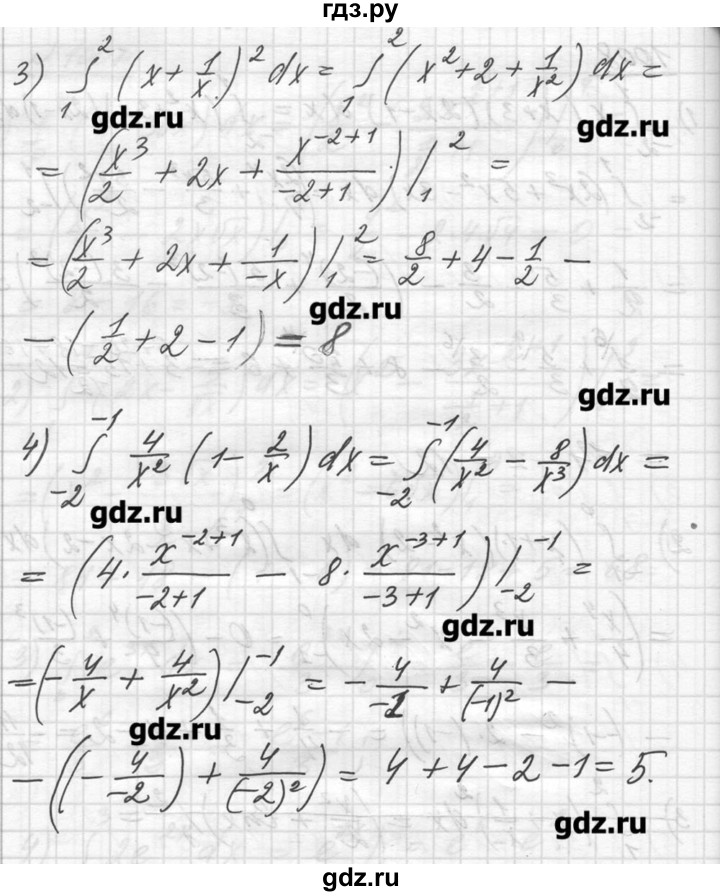 гдз.ру
3) ∫₁² (x + 1/x)² dx = ∫₁² (x² + 2 + 1/x²) dx =
gdz.ru
gdz.ru
= (x³/2 + 2x + x⁻²⁺¹/(-2+1)) |₁² =
= (x³/2 + 2x + 1/(-x)) |₁² = 8/2 + 4 - 1/2 -
gdz.ru
- (1/2 + 2 - 1) = 8
gdz.ru
4) ∫₋₂⁻¹ 4/x² (1 - 2/x) dx = ∫₋₂⁻¹ (4/x² - 8/x³) dx =
gdz.ru
= (4 · x⁻²⁺¹/(-2+1) - 8 · x⁻³⁺¹/(-3+1)) |₋₂⁻¹ =
gdz.ru
= (-4/x + 4/x²) |₋₂⁻¹ = -4/-1 + 4/(-1)² -
gdz.ru
- ((-4/-2) + 4/(-2)²) = 4 + 4 - 2 - 1 = 5.
gdz.ru
gdz.ru